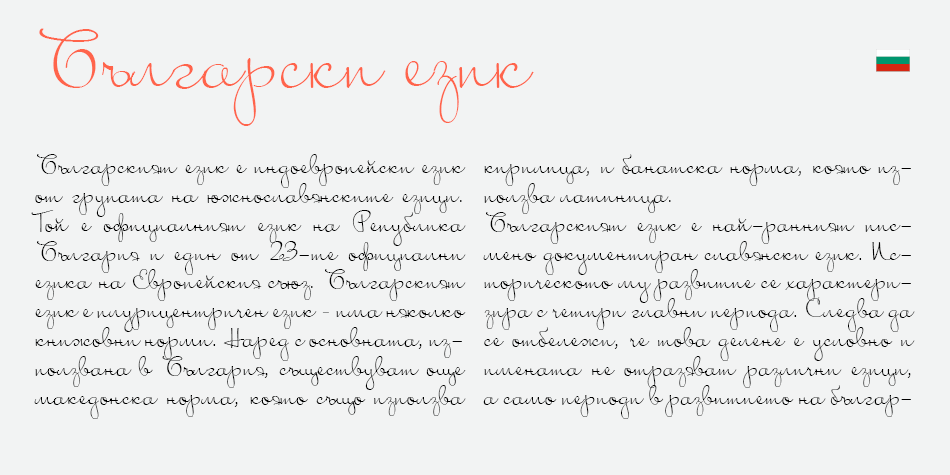 Български език
Българският език е индоевропейски език
от групата на южнославянските езици.
Той е официалният език на Република
България и един от 23-те официални
езика на Европейския съюз. Българският
език е плурицентричен език - има няколко
книжовни норми. Наред с основната, из-
ползвана в България, съществуват още
македонска норма, която също използва
кирилица, и банатска норма, която из-
ползва латиница.
Българският език е най-ранният пис-
мено документиран славянски език. Ис-
торическото му развитие се характери-
зира с четири главни периода. Следва да
се отбележи, че това делене е условно и
имената не отразяват различни езици,
а само периоди в развитието на българ-